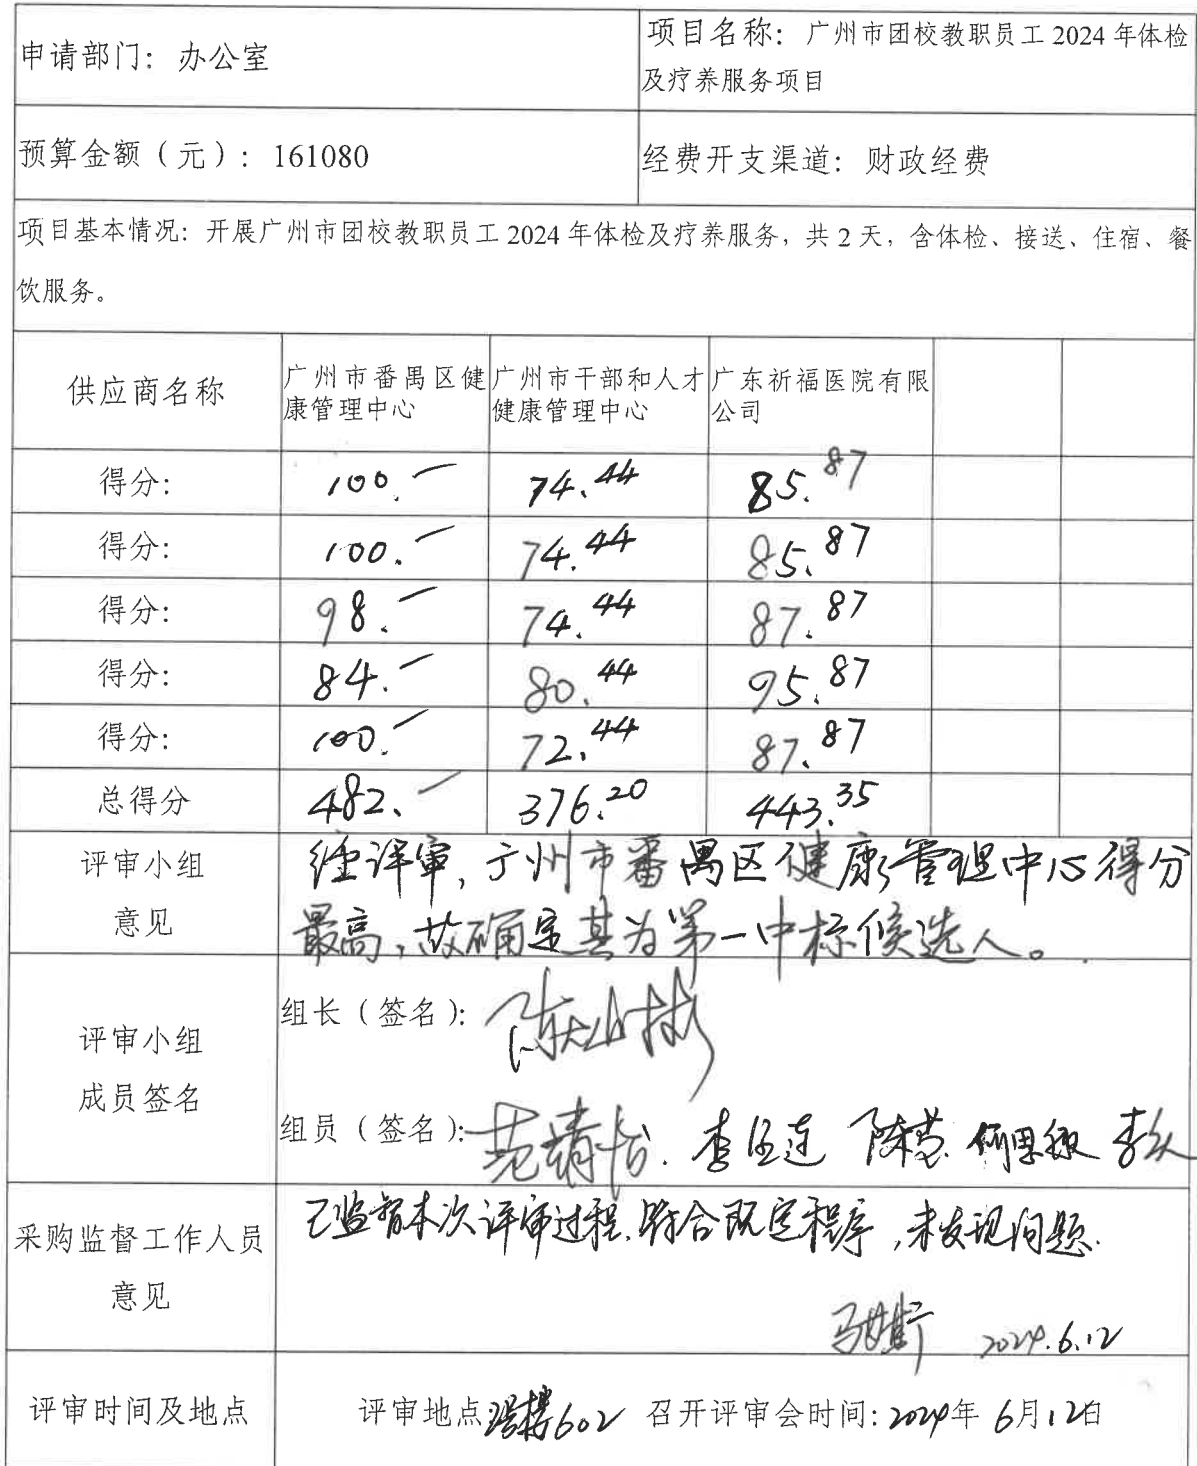 申请部门：办公室
项目名称：广州市团校教职员工 2024 年体检
及疗养服务项目
预算金额（元）：161080
经费开支渠道：财政经费
项目基本情况：开展广州市团校教职员工 2024 年体检及疗养服务，共 2 天，含体检、接送、住宿、餐
饮服务。
供应商名称
广州市番禺区健
康管理中心
广州市干部和人才
健康管理中心
广东祈福医院有限
公司
得分： 100.— 74.44 85.87
得分： 100.— 74.44 85.87
得分： 98.— 74.44 87.87
得分： 84.— 80.44 95.87
得分： 100.— 72.44 87.87
总得分 482.— 376.20 443.35
评审小组
意见
经评审，广州市番禺区健康管理中心得分
最高，故确定其为第一中标候选人。
评审小组
成员签名
组长（签名）：
组员（签名）：
采购监督工作人员
意见
已监督本次评审过程，符合既定程序，未发现问题.
2024.6.12
评审时间及地点
评审地点 602 召开评审会时间：2024年 6月12日